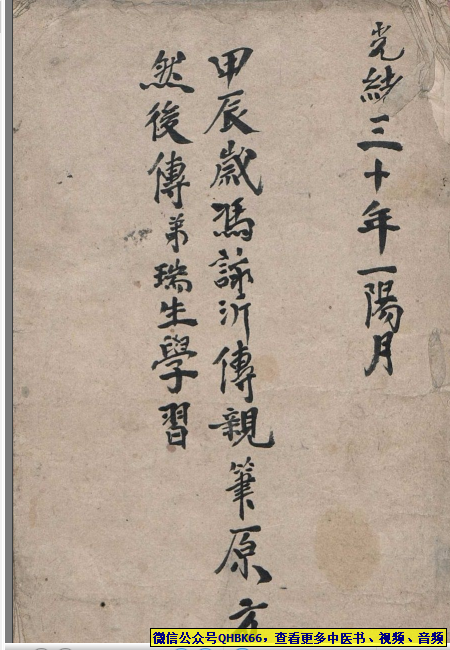 光緒三十年一陽月
甲辰歲馮詠沂傳親筆原方
然後傳弟瑞生學習
微信公众号QHBK66，查看更多中医书、视频、音频